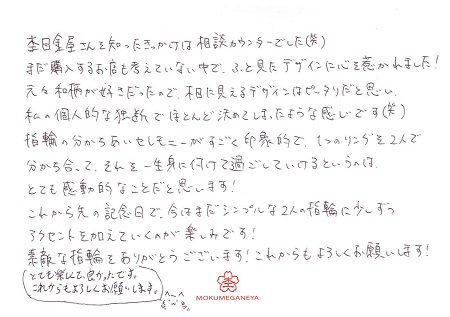 杢目金屋さんを知ったきっかけは相談カウンターでした(笑)
まだ購入するお店も考えていない中で、ふと見たデザインに心を惹かれました！
元々和柄が好きだったので、木目に見えるデザインはピッタリだと思い、
私の個人的な独断でほとんど決めてしまったような感じです(笑)
指輪の分かちあいセレモニーがすごく印象的で、1つのリングを2人で
分かち合って、それを一生身に付けて過ごしていけるというのは、
とても感動的なことだと思います！
これから先の記念日で、今はまだシンプルな2人の指輪に少しずつ
アクセントを加えていくのが楽しみです！
素敵な指輪をありがとうございます！これからもよろしくお願いします！
とても楽しくて良かったです。
これからもよろしくお願いします。
MOKUMEGANEYA